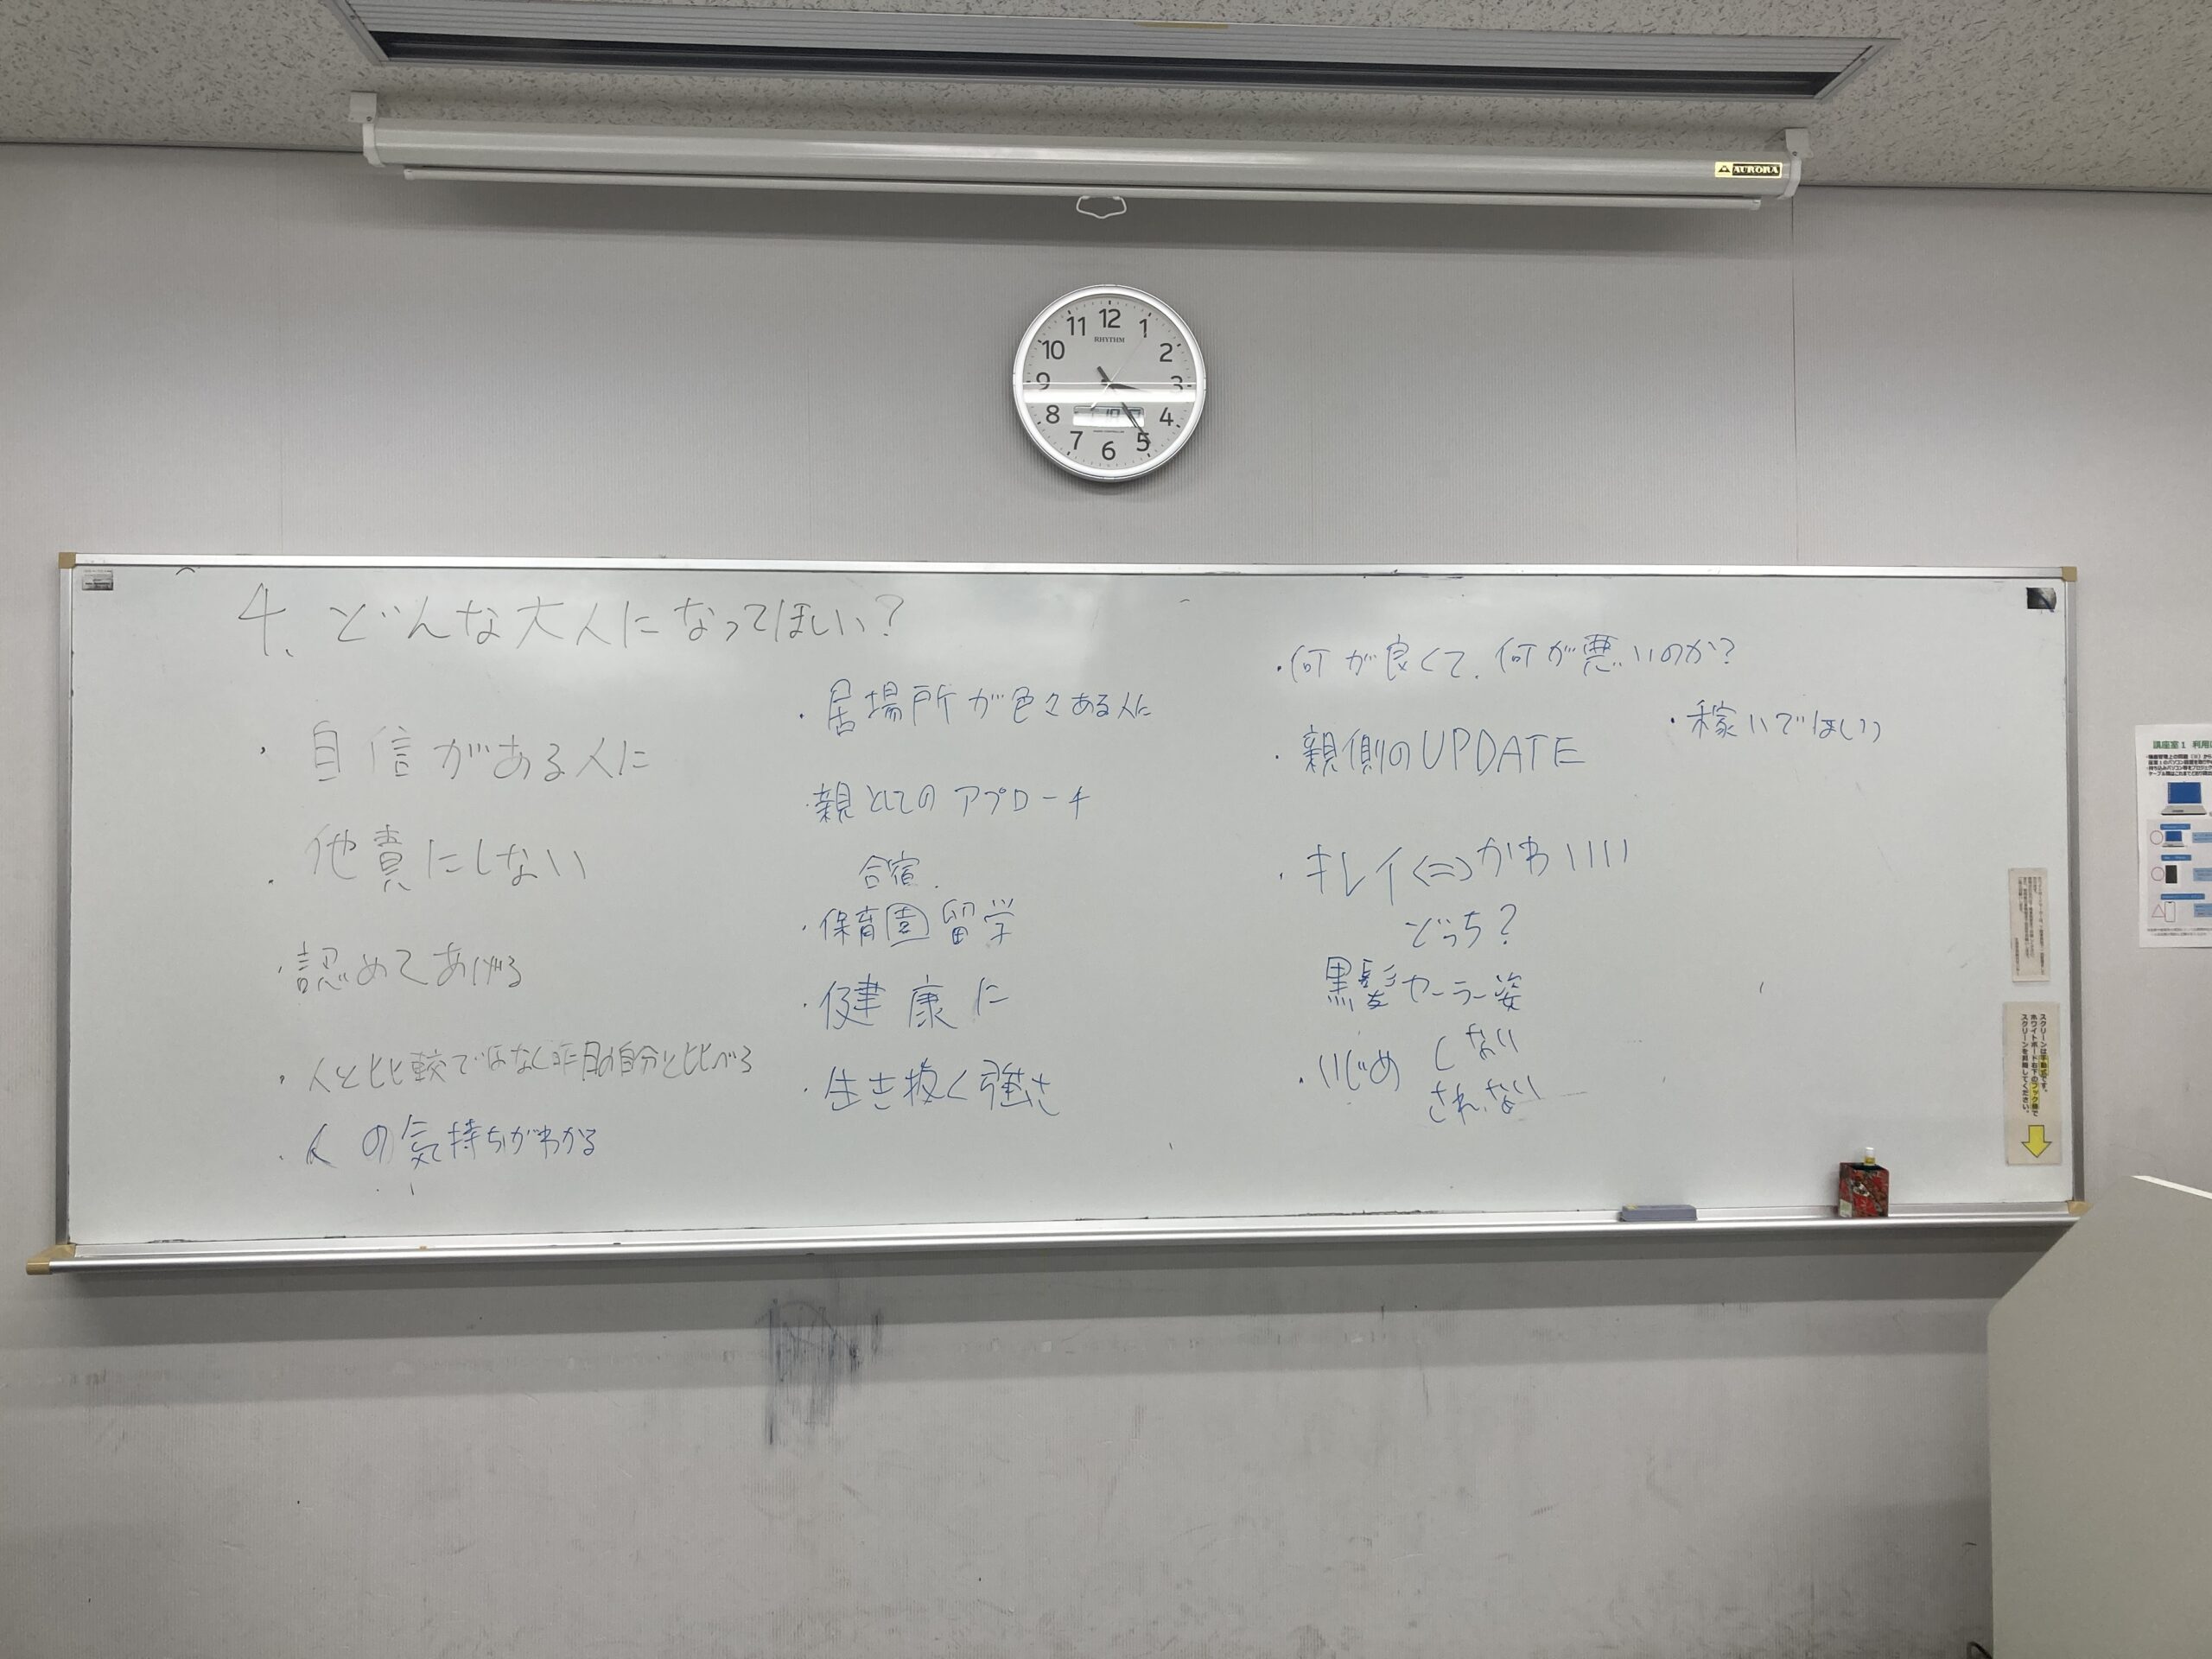 AURORA
11 12 1
10 2
9 3
8 4
7 6 5
RHYTHM
4. どんな大人になってほしい?
・自信がある人に
・他責にしない
・認めてあげる
・人と比較ではなく昨日の自分と比べる
・人の気持ちがわかる
・居場所が色々ある人に
・親としてのアプローチ
合宿
・保育園留学
・健康に
・生き抜く強さ
・何が良くて、何が悪いのか?
・親側のUPDATE
・稼いでほしい
・キレイ<=>かわいい
どっち?
黒髪セーラー姿
・いじめ しない
されない
スクリーンは手動式です。
ホワイトボード右下のフック棒で
スクリーンを昇降してください。
講座室1 利用